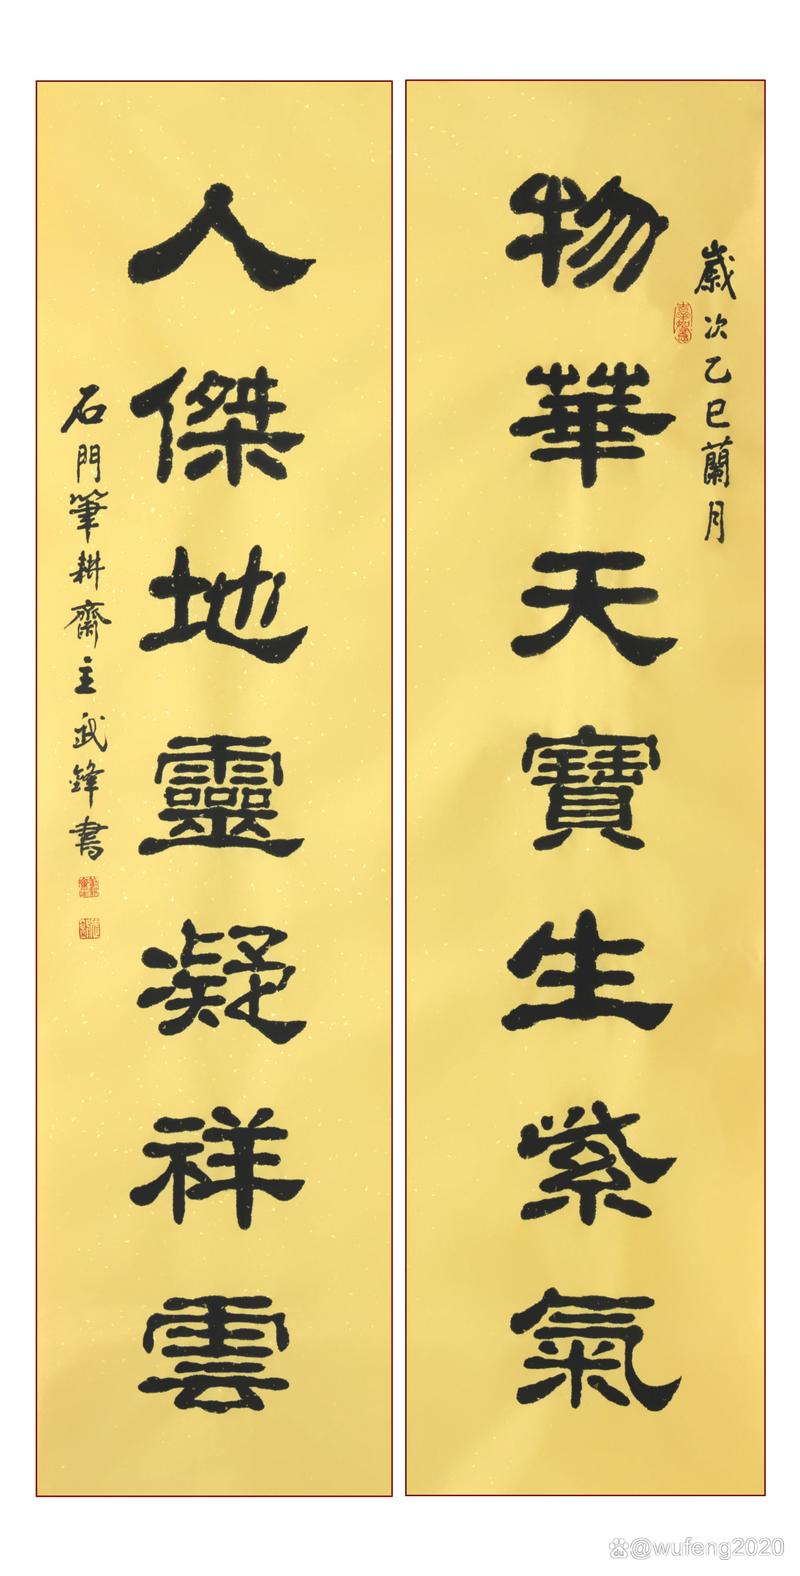 歲次乙巳蘭月
物華天寶生紫氣
人傑地靈凝祥雲
石門筆耕齋主武鋒書
@wufeng2020